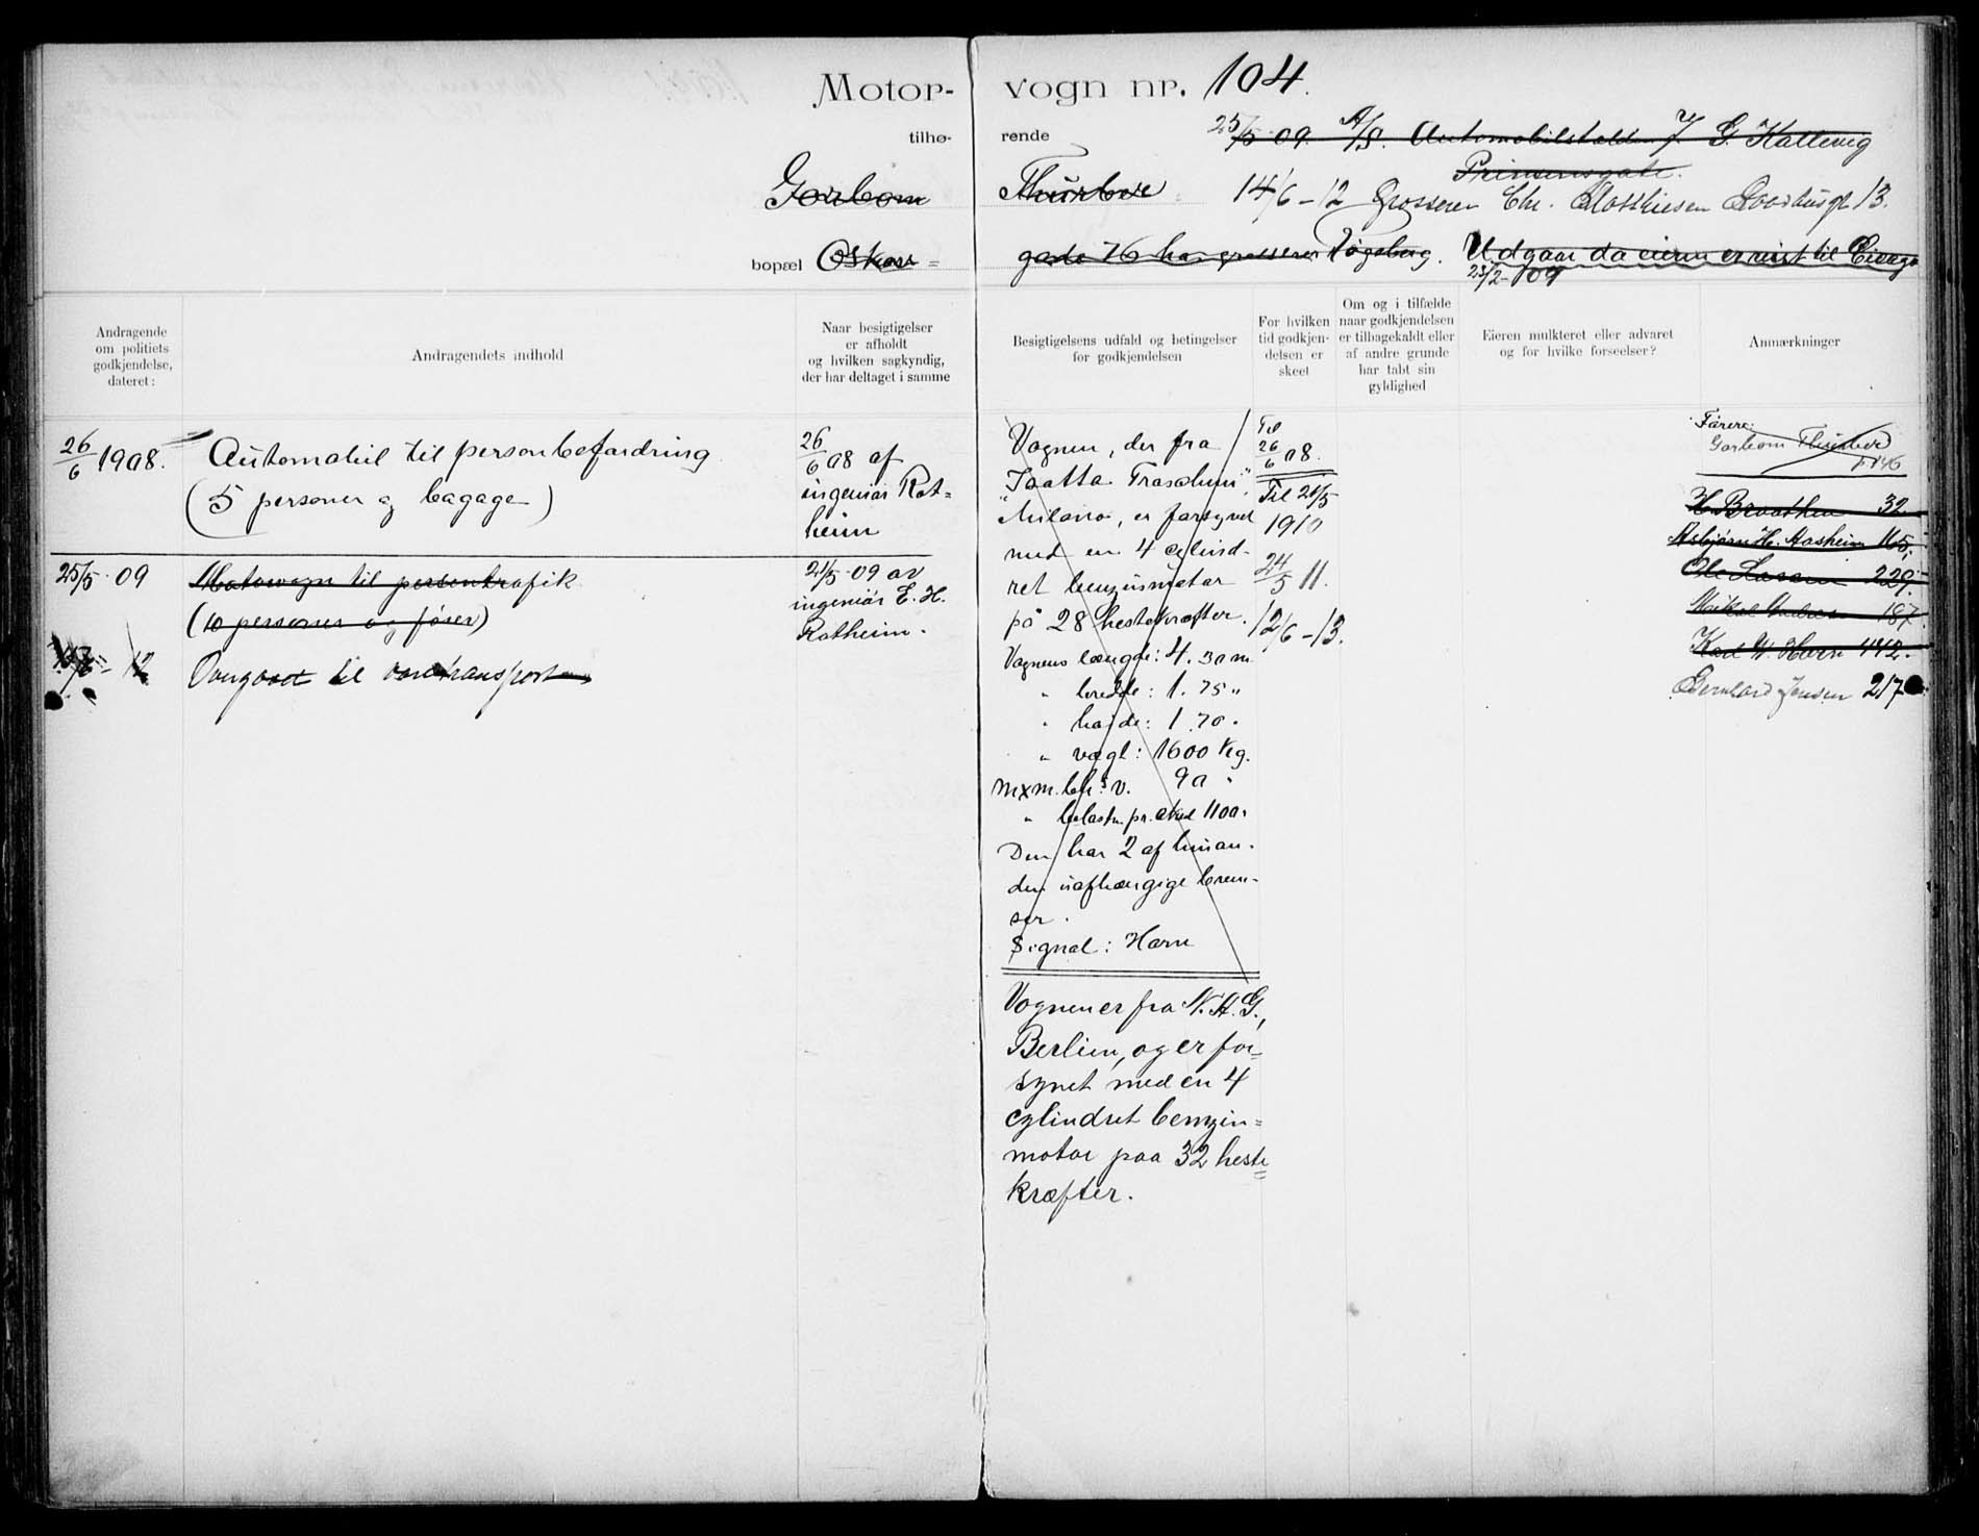 Motor-vogn nr. 104.
tilhørende 25/5 09. A/S. Automobilstolden J G. Kallevig
Prinsensgate.
Gorbom Thurbee 14/6 - 12 Grosserer Chr. Matthiesen Raadhusgt 13.
bopæl Oskars=gade 76 hos grosserer Tøgeberg. Udgaar da eieren er reist til
23/2 - 09
Andragende
om politiets
godkjendelse,
dateret:
Andragendets indhold
Naar besigtigelser
er afholdt
og hvilken sagkyndig,
der har deltaget i samme
Besigtigelsens udfald og betingelser
for godkjendelsen
For hvilken
tid godkjen-
delsen er
skeet
Om og i tilfælde
naar godkjendelsen
er tilbagekaldt eller
af andre grunde
har tabt sin
gyldighed
Eieren mulkteret eller advaret
og for hvilke forseelser?
Anmærkninger
26/6 1908.
Automobil til personbefordring
(5 personer og bagage)
26/6 08 af
ingeniør Rot=
heim
25/5 09
Motorvogn til persontrafik
(10 personer og fører)
21/5 - 09 av
ingeniør E. H.
Rotheim.
12
Overgaaet til varetransport
Vognen, der fra
"Isotta Fraschini",
Milano, er forsynet
med en 4 cylind-
ret benzinmotor
på 28 hestekræfter.
Vognens længde: 4.30 m
" bredde: 1.75 "
" høide: 1.70 "
" vægt: 1600 kg.
mxm. bh. v. 90 "
" belastn. pr. aksel 1100 "
Den har 2 af hinan-
den uafhængige brem-
ser.
Signal: Horn
Vognen er fra N.A.G.,
Berlin, og er for-
synet med en 4
cylindret benzin=
motor paa 32 heste=
kræfter.
Til
26/6 08.
Til 21/5
1910
24/5 11.
12/6 - 13.
Førere:
Gorbom Thurbee
146
H. Braathen 32
Asbjørn H. Aasheim 165.
Ole Larsen 229.
Mikal 187
Karl W. Horn 442.
Bernhard Jensen 217